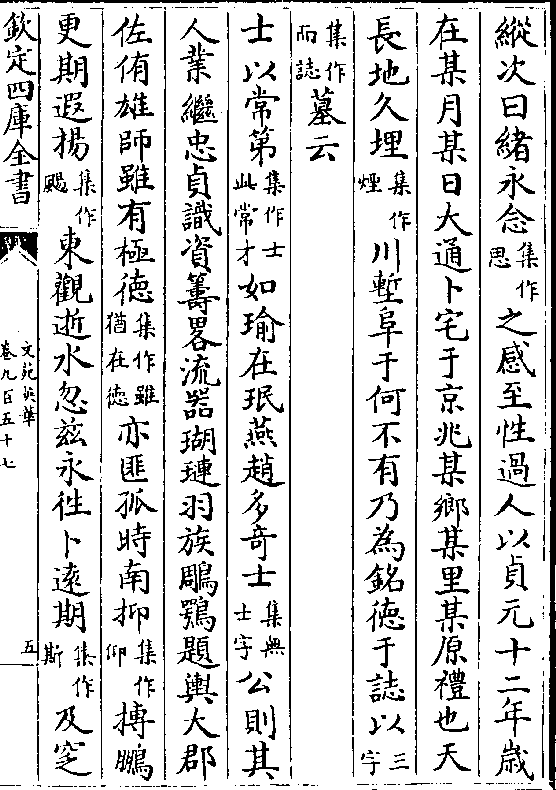 縱次曰緒永念集作思之感至性過人以貞元十二年歲
在某月某日大通卜宅于京兆某鄉某里某原禮也天
長地久埋集作煙川塹阜于何不有乃為銘徳于誌以三字
集作而誌墓云
士以常第集作士此常才如瑜在珉燕趙多奇士集無士字公則其
人業繼忠貞識資籌畧流器瑚璉羽族鵰鶚題輿大郡
佐侑雄師雖有極徳集作雖猶在徳亦匪孤時南抑集作仰摶鵬
更期遐揚集作颺東觀逝水忽兹永徃卜逺期集作斯及窆
欽定四庫全書
文苑英華
卷九百五十七
五